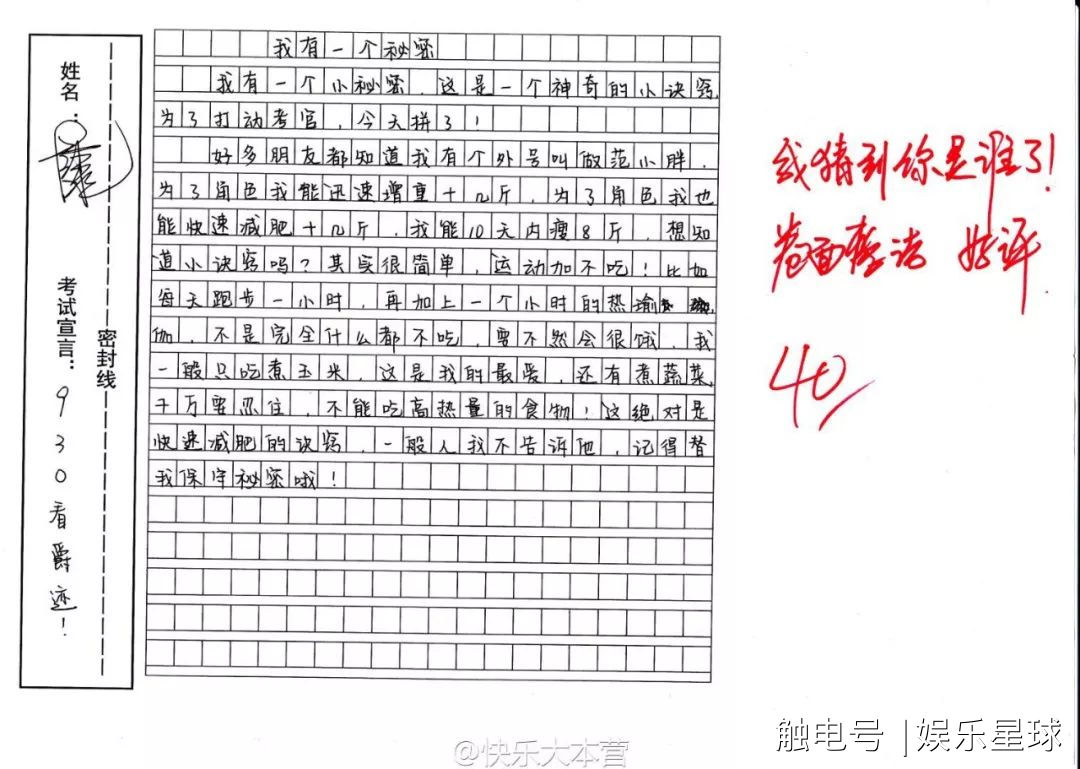 姓名：
考试宣言：930看爵迹！
密封线
我有一个秘密
我有一个小秘密，这是一个神奇的小诀窍，
为了打动考官，今天拼了！
好多朋友都知道我有个外号叫做范小胖，
为了角色我能迅速增重十几斤，为了角色我也
能快速减肥十几斤，我能10天内瘦8斤，想知
道小诀窍吗？其实很简单，运动加不吃！比如
每天跑步一小时，再加上一个小时的热瑜
伽，不是完全什么都不吃，要不然会很饿，我
一般只吃煮玉米，这是我的最爱，还有煮蔬菜，
千万要忍住，不能吃高热量的食物！这绝对是
快速减肥的诀窍，一般人我不告诉他，记得替
我保守秘密哦！
我猜到你是谁了！
卷面整洁 好评
40
@快乐大本营
触电号 | 娱乐星球